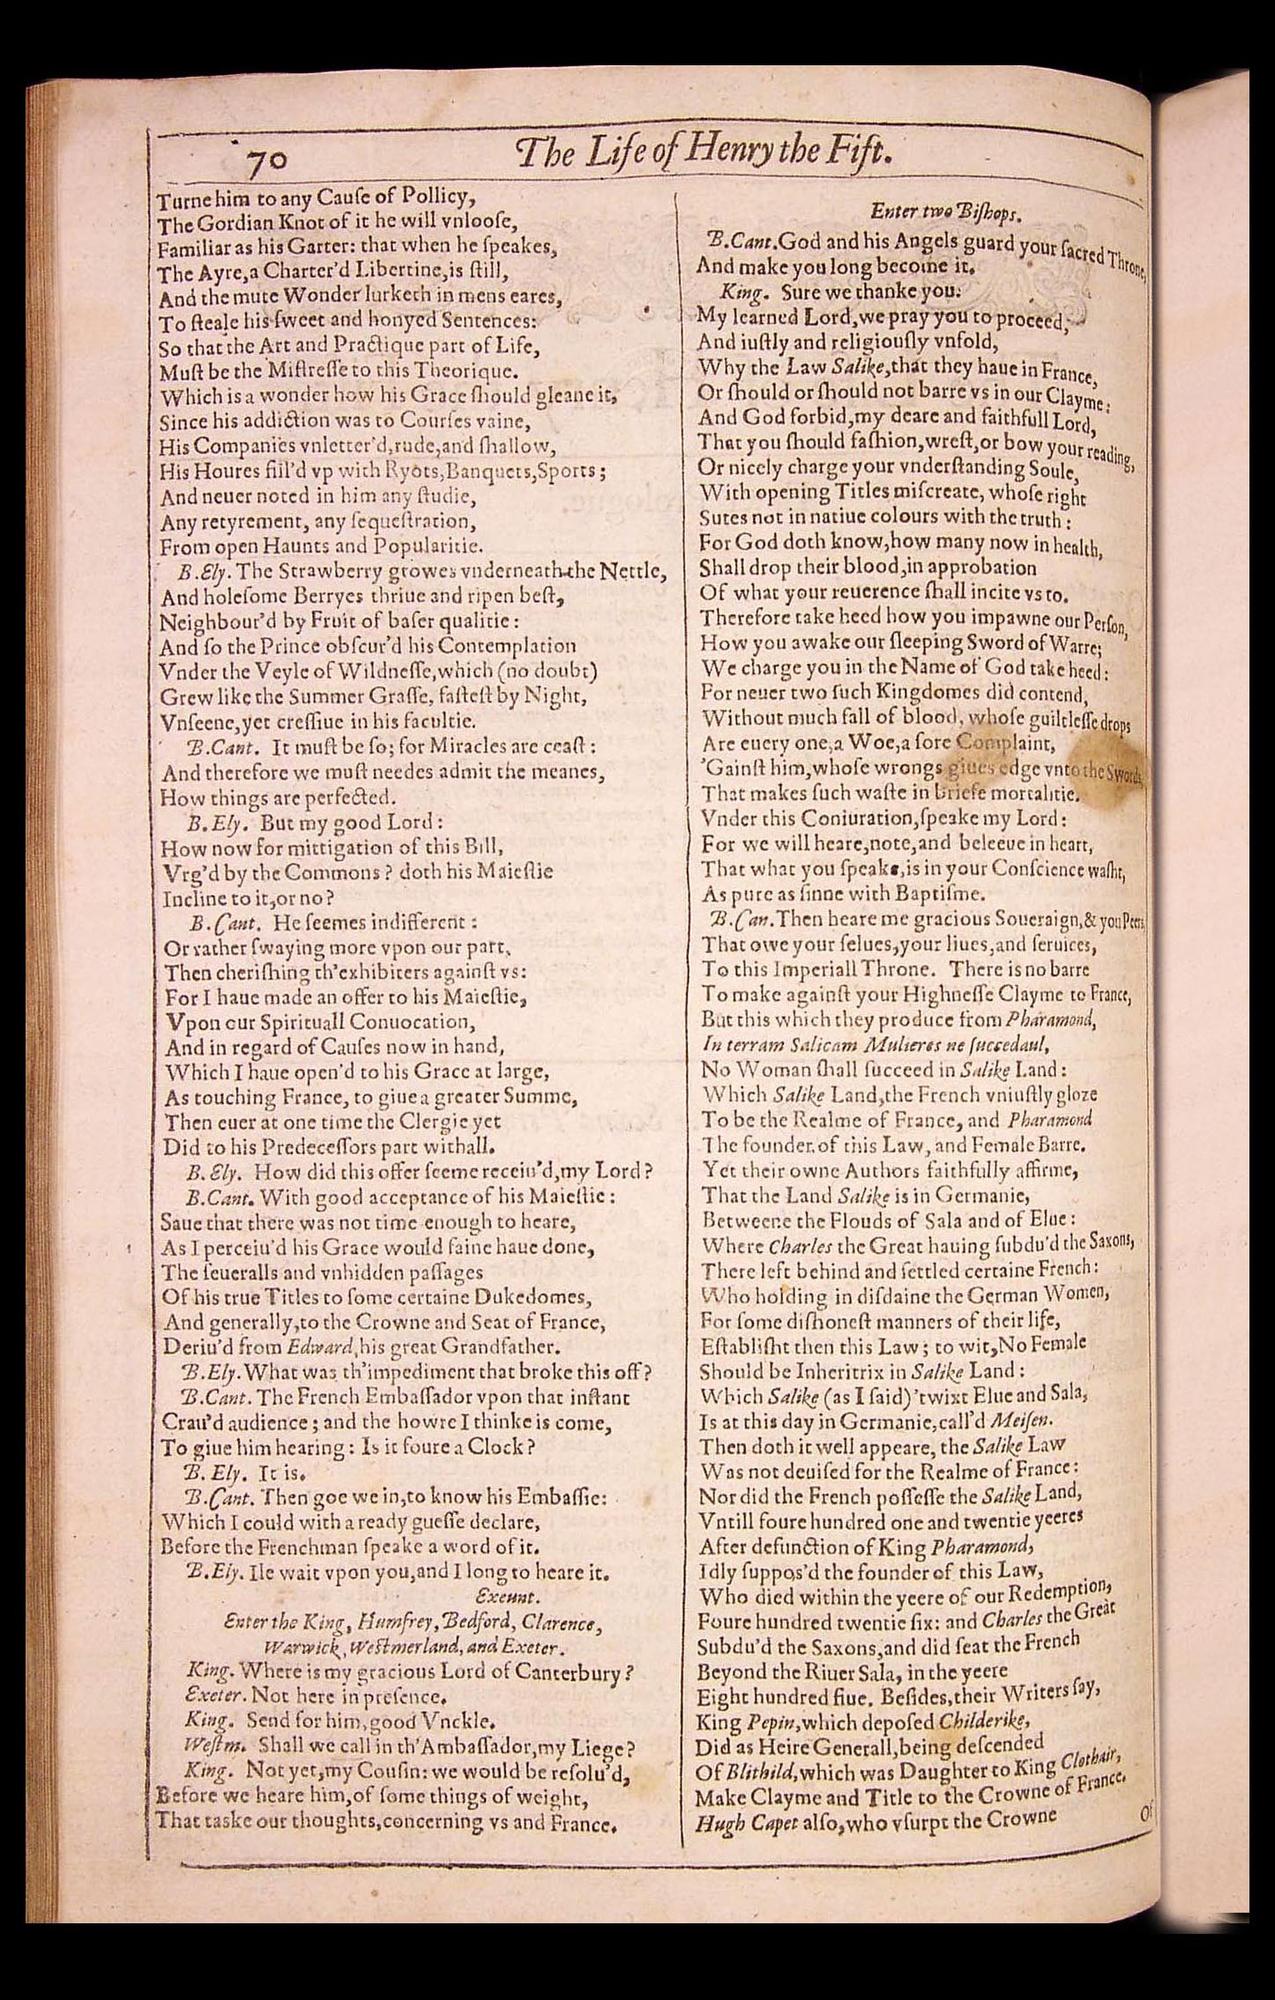 70
The Life of Henry the Fift.
Turne him to any Cauſe of Pollicy,
The Gordian Knot of it he will vnlooſe,
Familiar as his Garter: that when he ſpeakes,
The Ayre, a Charter'd Libertine, is ſtill,
And the mute Wonder lurketh in mens eares,
To ſteale his ſweet and honyed Sentences:
So that the Art and Practique part of Life,
Muſt be the Miſtreſſe to this Theorique.
Which is a wonder how his Grace ſhould gleane it,
Since his addiction was to Courſes vaine,
His Companies vnletter'd, rude, and ſhallow,
His Houres fill'd vp with Ryots, Banquets, Sports;
And neuer noted in him any ſtudie,
Any retyrement, any ſequeſtration,
From open Haunts and Popularitie.
B.Ely. The Strawberry growes vnderneath the Nettle,
And holeſome Berryes thriue and ripen beſt,
Neighbour'd by Fruit of baſer qualitie:
And ſo the Prince obſcur'd his Contemplation
Vnder the Veyle of Wildneſſe, which (no doubt)
Grew like the Summer Graſſe, faſteſt by Night,
Vnſeene, yet creſſiue in his facultie.
B.Cant. It muſt be ſo; for Miracles are ceaſt:
And therefore we muſt needes admit the meanes,
How things are perfected.
B.Ely. But my good Lord:
How now for mittigation of this Bill,
Vrg'd by the Commons? doth his Maieſtie
Incline to it, or no?
B.Cant. He ſeemes indifferent:
Or rather ſwaying more vpon our part,
Then cheriſhing th'exhibiters againſt vs:
For I haue made an offer to his Maieſtie,
Vpon our Spirituall Conuocation,
And in regard of Cauſes now in hand,
Which I haue open'd to his Grace at large,
As touching France, to giue a greater Summe,
Then euer at one time the Clergie yet
Did to his Predeceſſors part withall.
B.Ely. How did this offer ſeeme receiu'd, my Lord?
B.Cant. With good acceptance of his Maieſtie:
Saue that there was not time enough to heare,
As I perceiu'd his Grace would faine haue done,
The ſeueralls and vnhidden paſſages
Of his true Titles to ſome certaine Dukedomes,
And generally, to the Crowne and Seat of France,
Deriu'd from Edward, his great Grandfather.
B.Ely. What was th'impediment that broke this off?
B.Cant. The French Embaſſador vpon that inſtant
Crau'd audience; and the howre I thinke is come,
To giue him hearing: Is it foure a Clock?
B.Ely. It is.
B.Cant. Then goe we in, to know his Embaſſie:
Which I could with a ready gueſſe declare,
Before the Frenchman ſpeake a word of it.
B.Ely. Ile wait vpon you, and I long to heare it.
Exeunt.
Enter the King, Humfrey, Bedford, Clarence,
Warwick, Weſtmerland, and Exeter.
King. Where is my gracious Lord of Canterbury?
Exeter. Not here in preſence.
King. Send for him, good Vnckle.
Weſtm. Shall we call in th'Ambaſſador, my Liege?
King. Not yet, my Couſin: we would be reſolu'd,
Before we heare him, of ſome things of weight,
That taske our thoughts, concerning vs and France.
Enter two Biſhops.
B.Cant. God and his Angels guard your ſacred Throne,
And make you long become it.
King. Sure we thanke you.
My learned Lord, we pray you to proceed,
And iuſtly and religiouſly vnfold,
Why the Law Salike, that they haue in France,
Or ſhould or ſhould not barre vs in our Clayme:
And God forbid, my deare and faithfull Lord,
That you ſhould faſhion, wreſt, or bow your reading,
Or nicely charge your vnderſtanding Soule,
With opening Titles miſcreate, whoſe right
Sutes not in natiue colours with the truth:
For God doth know, how many now in health,
Shall drop their blood, in approbation
Of what your reuerence ſhall incite vs to.
Therefore take heed how you impawne our Perſon,
How you awake our ſleeping Sword of Warre;
We charge you in the Name of God take heed:
For neuer two ſuch Kingdomes did contend,
Without much fall of blood, whoſe guiltleſſe drops
Are euery one, a Woe, a ſore Complaint,
'Gainſt him, whoſe wrongs giues edge vnto the Swords,
That makes ſuch waſte in briefe mortalitie.
Vnder this Coniuration, ſpeake my Lord:
For we will heare, note, and beleeue in heart,
That what you ſpeake, is in your Conſcience waſht,
As pure as ſinne with Baptiſme.
B.Can. Then heare me gracious Soueraign, & you Peers,
That owe your ſelues, your liues, and ſeruices,
To this Imperiall Throne. There is no barre
To make againſt your Highneſſe Clayme to France,
But this which they produce from Pharamond,
In terram Salicam Mulieres ne ſuccedaul,
No Woman ſhall ſucceed in Salike Land:
Which Salike Land, the French vniuſtly gloze
To be the Realme of France, and Pharamond
The founder of this Law, and Female Barre.
Yet their owne Authors faithfully affirme,
That the Land Salike is in Germanie,
Betweene the Flouds of Sala and of Elue:
Where Charles the Great hauing ſubdu'd the Saxons,
There left behind and ſettled certaine French:
Who holding in diſdaine the German Women,
For ſome diſhoneſt manners of their life,
Eſtabliſht then this Law; to wit, No Female
Should be Inheritrix in Salike Land:
Which Salike (as I ſaid) 'twixt Elue and Sala,
Is at this day in Germanie, call'd Meiſen.
Then doth it well appeare, the Salike Law
Was not deuiſed for the Realme of France:
Nor did the French poſſeſſe the Salike Land,
Vntill foure hundred one and twentie yeeres
After defunction of King Pharamond,
Idly ſuppos'd the founder of this Law,
Who died within the yeere of our Redemption,
Foure hundred twentie ſix: and Charles the Great
Subdu'd the Saxons, and did ſeat the French
Beyond the Riuer Sala, in the yeere
Eight hundred fiue. Beſides, their Writers ſay,
King Pepin, which depoſed Childerike,
Did as Heire Generall, being deſcended
Of Blithild, which was Daughter to King Clothair,
Make Clayme and Title to the Crowne of France.
Hugh Capet alſo, who vſurpt the Crowne
Of